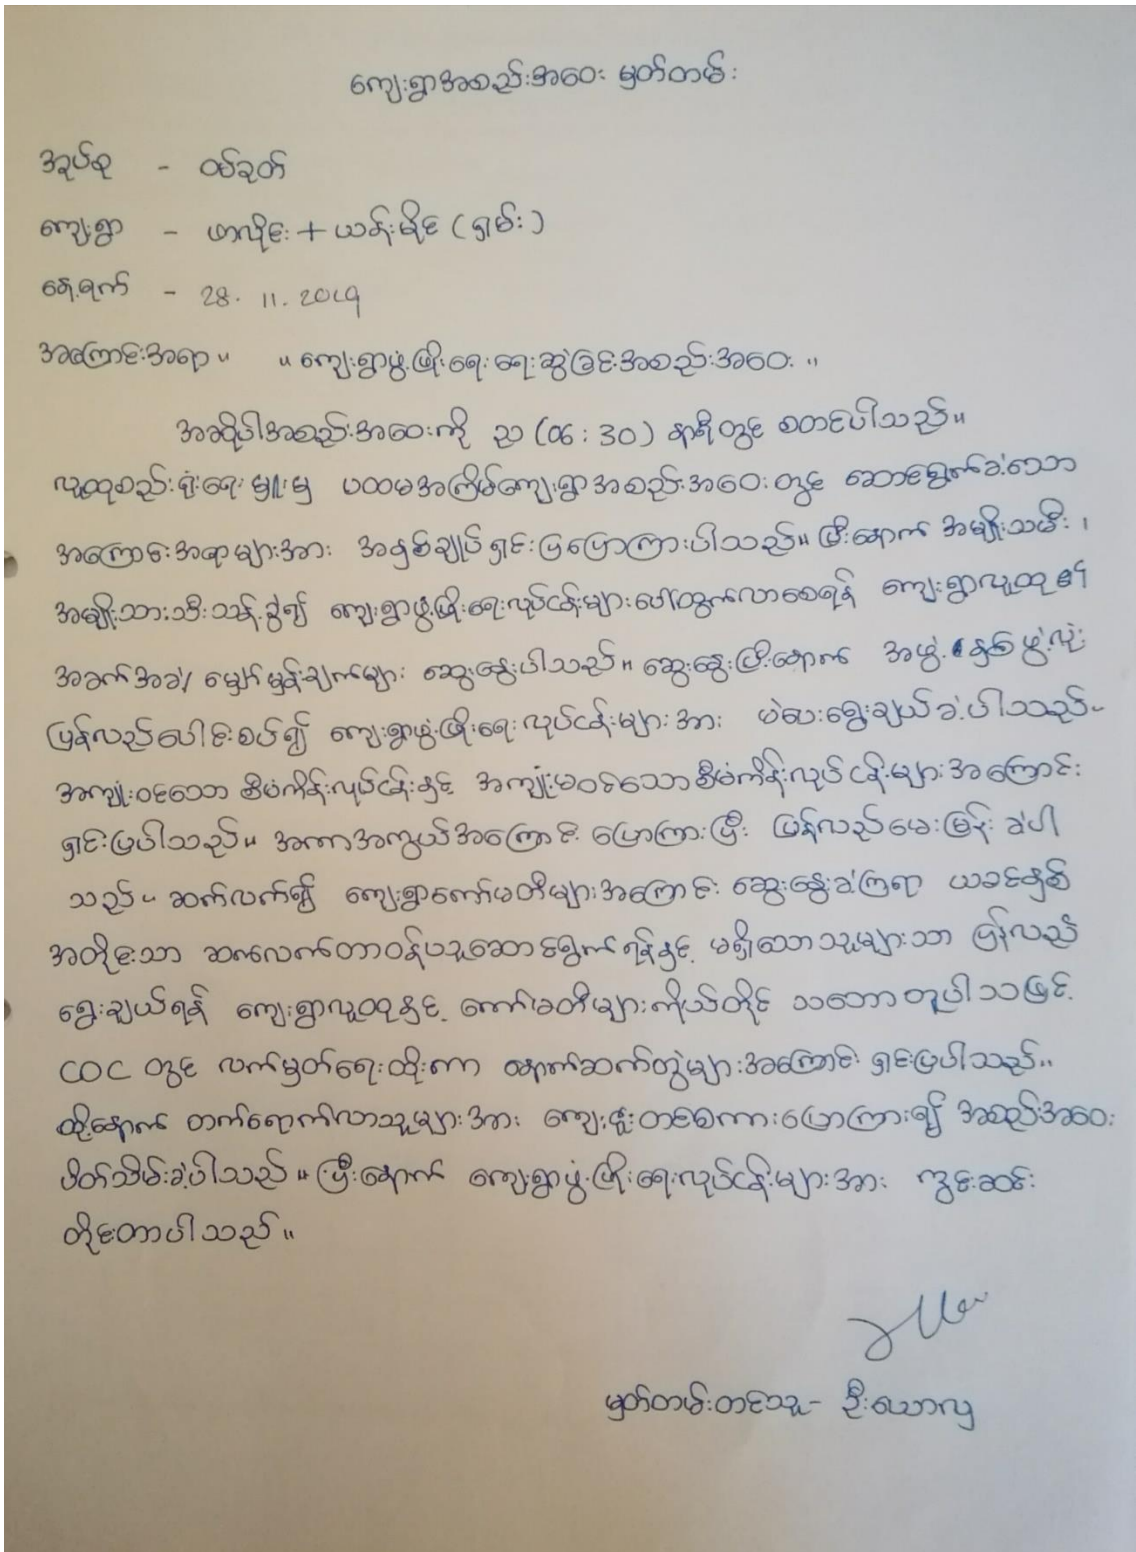 ကျေးရွာအစည်းအဝေး မှတ်တမ်း
အုပ်စု - ဝမ်ခုတ်
ကျေးရွာ - ဟာလိုင်း + ယန်းမိုင် (ရှမ်း)
နေ့ရက် - 28. 11. 2019
အကြောင်းအရာ။ "ကျေးရွာဖွံ့ဖြိုးရေး ရေးဆွဲခြင်းအစည်းအဝေး"
အဆိုပါအစည်းအဝေးကို ည (06 : 30) နာရီတွင် စတင်ပါသည်။
လူထုစည်းရုံးရေးမှူးမှ ပထမအကြိမ်ကျေးရွာအစည်းအဝေးတွင် ဆောင်ရွက်ခဲ့သော
အကြောင်းအရာများအား အနှစ်ချုပ်ရှင်းပြပြောကြားပါသည်။ ပြီးနောက် အမျိုးသမီး ၊
အမျိုးသားသီးသန့်ခွဲ၍ ကျေးရွာဖွံ့ဖြိုးရေးလုပ်ငန်းများပေါ်ထွက်လာစေရန် ကျေးရွာလူထု၏
အခက်အခဲ/ မျှော်မှန်းချက်များ ဆွေးနွေးပါသည်။ ဆွေးနွေးပြီးနောက် အဖွဲ့ နှစ်ဖွဲ့လုံး
ပြန်လည်ပေါင်းစပ်၍ ကျေးရွာဖွံ့ဖြိုးရေးလုပ်ငန်းများအား မဲပေးရွေးချယ်ခဲ့ပါသည်။
အကျုံးဝင်သော စီမံကိန်းလုပ်ငန်းနှင့် အကျုံးမဝင်သောစီမံကိန်းလုပ်ငန်းများအကြောင်း
ရှင်းပြပါသည်။ အကာအကွယ်အကြောင်း ပြောကြားပြီး ပြန်လည်မေးမြန်းခဲ့ပါ
သည်။ ဆက်လက်၍ ကျေးရွာကော်မတီများအကြောင်း ဆွေးနွေးခဲ့ကြရာ ယခင်နှစ်
အတိုင်းသာ ဆက်လက်တာဝန်ယူဆောင်ရွက်ရန်နှင့် မရှိသောသူများသာ ပြန်လည်
ရွေးချယ်ရန် ကျေးရွာလူထုနှင့် ကော်မတီများကိုယ်တိုင် သဘောတူပါသဖြင့်
COC တွင် လက်မှတ်ရေးထိုးကာ နောက်ဆက်တွဲများအကြောင်း ရှင်းပြပါသည်။
ထို့နောက် တက်ရောက်လာသူများအား ကျေးဇူးတင်စကားပြောကြား၍ အစည်းအဝေး
ပိတ်သိမ်းခဲ့ပါသည်။ ပြီးနောက် ကျေးရွာဖွံ့ဖြိုးရေးလုပ်ငန်းများအား ကွင်းဆင်း
တိုင်းတာပါသည်။
မှတ်တမ်းတင်သူ - ဦးယောလှ